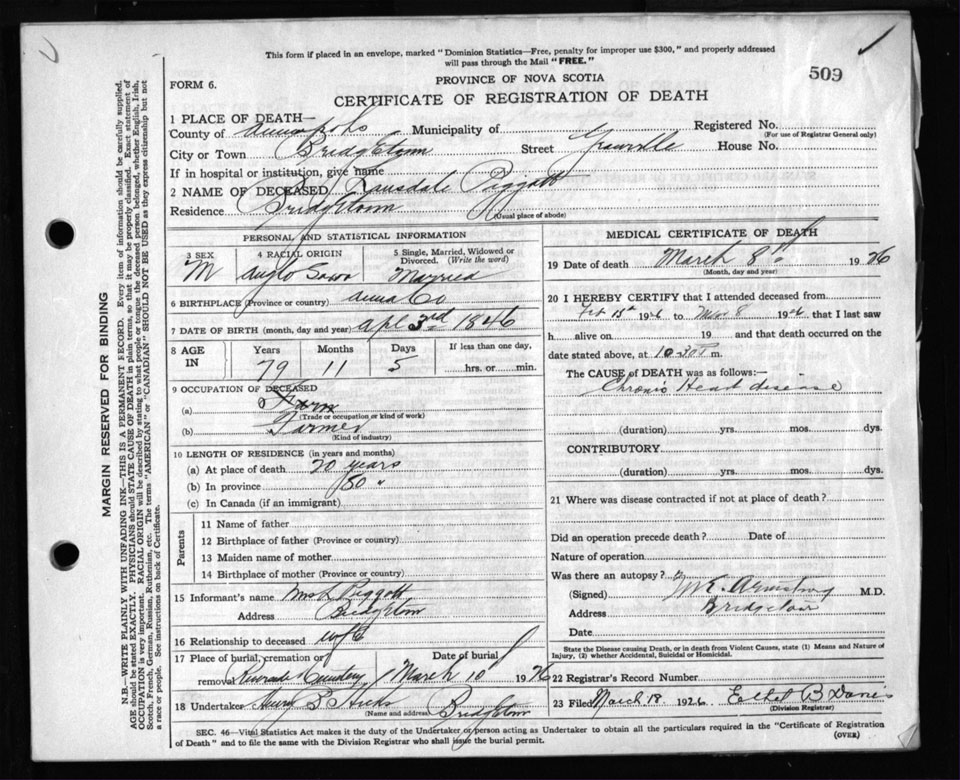 This form if placed in an envelope, marked "Dominion Statistics—Free, penalty for improper use $300," and properly addressed
will pass through the Mail "FREE."
509
FORM 6.
PROVINCE OF NOVA SCOTIA
CERTIFICATE OF REGISTRATION OF DEATH
1 PLACE OF DEATH—
County of Annapolis Municipality of Registered No.
(For use of Registrar General only)
City or Town Bridgetown Street Granville House No.
If in hospital or institution, give name
2 NAME OF DECEASED Lansdale Piggott
Residence Bridgetown
(Usual place of abode)
PERSONAL AND STATISTICAL INFORMATION
3 SEX 4 RACIAL ORIGIN 5 Single, Married, Widowed or
Divorced. (Write the word)
M Anglo Married
6 BIRTHPLACE (Province or country) Anna Co
7 DATE OF BIRTH (month, day and year) Apl 3rd 1846
8 AGE IN Years Months Days If less than one day,
79 11 5 hrs. or min.
9 OCCUPATION OF DECEASED
(a) Farm
(Trade or occupation or kind of work)
(b) Farmer
(Kind of industry)
10 LENGTH OF RESIDENCE (in years and months)
(a) At place of death 20 years
(b) In province 80 "
(c) In Canada (if an immigrant)
Parents
11 Name of father
12 Birthplace of father (Province or country)
13 Maiden name of mother
14 Birthplace of mother (Province or country)
15 Informant's name Mrs L Piggott
Address Bridgetown
16 Relationship to deceased wife
17 Place of burial, cremation or Date of burial
removal Cemetery March 10 1926
18 Undertaker Henry B Hicks
(Name and address) Bridgetown
MEDICAL CERTIFICATE OF DEATH
19 Date of death March 8th 1926
(Month, day and year)
20 I HEREBY CERTIFY that I attended deceased from
Feb 15th 1926 to Mar 8 1926 that I last saw
h alive on 19 and that death occurred on
date stated above, at 10.30 m.
The CAUSE of DEATH was as follows:—
Chronic Heart disease
(duration) yrs. mos. dys.
CONTRIBUTORY.
(duration) yrs. mos. dys.
21 Where was disease contracted if not at place of death?
Did an operation precede death? Date of
Nature of operation
Was there an autopsy?
(Signed) Armstrong M.D.
Address Bridgetown
Date
State the Disease causing Death, or in death from Violent Causes, state (1) Means and Nature of
Injury, (2) whether Accidental, Suicidal or Homicidal.
22 Registrar's Record Number
23 Filed March 18. 1926. Ethel B
(Division Registrar)
SEC. 46—Vital Statistics Act makes it the duty of the Undertaker or person acting as Undertaker to obtain all the particulars required in the "Certificate of Registration
of Death" and to file the same with the Division Registrar who shall issue the burial permit.
(OVER)
MARGIN RESERVED FOR BINDING
N.B.—WRITE PLAINLY WITH UNFADING INK—THIS IS A PERMANENT RECORD. Every item of information should be carefully supplied.
AGE should be stated EXACTLY. PHYSICIANS should STATE CAUSE OF DEATH in plain terms, so that it may be properly classified. Exact statement of
OCCUPATION is very important. RACIAL ORIGIN will be described by stating to what people or tongue the deceased person belonged, whether English, Irish,
Scotch, French, German, Russian, Ruthenian, etc. The terms "AMERICAN" or "CANADIAN" SHOULD NOT BE USED as they express citizenship but not
a race or people. See instructions on back of Certificate.